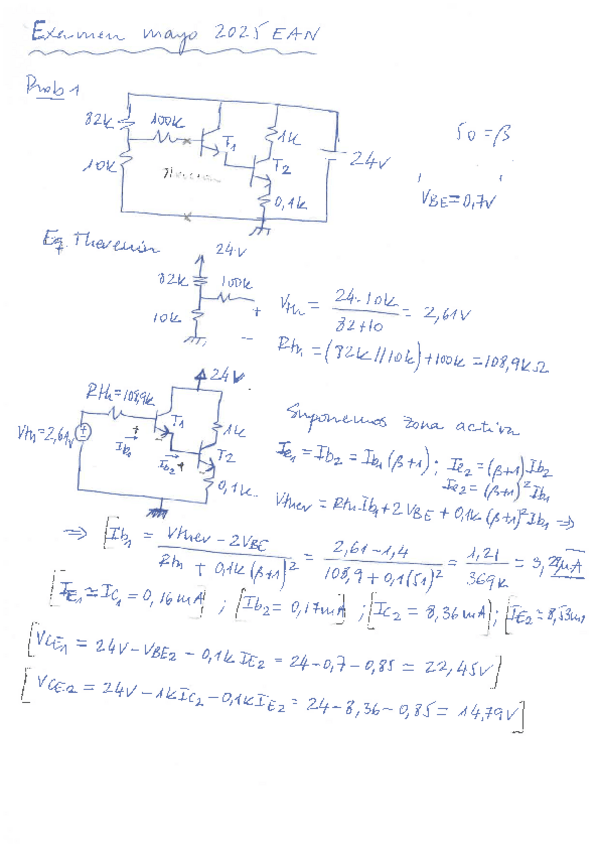 Examen mayo 2025 EAN
Prob 1
82k 100k 1k 50 = β
T1 T2 24V
10k Thevenin 0,1k VBE = 0,7V
Eq. Thevenin
24V
82k 100k
10k + Vth = 24·10k / 82+10 = 2,61V
- Rth = (82k//10k)+100k = 108,9kΩ
24V
Rth=108,9k T1 1k Suponemos zona activa
Vth=2,61V Ib1 Ib2 T2 Ie1 = Ib2 = Ib1(β+1); Ie2 = (β+1)Ib2
Ie2 = (β+1)²Ib1
0,1k Vthev = Rth Ib1 + 2VBE + 0,1k(β+1)²Ib1 =>
=> [Ib1 = Vthev - 2VBE / Rth + 0,1k(β+1)² = 2,61-1,4 / 108,9+0,1(51)² = 1,21 / 369k = 3,28μA
[IE1 ≃ IC1 = 0,16mA] ; [Ib2 = 0,17mA] ; [IC2 = 8,36mA] ; [IE2 = 8,53m
[VCE1 = 24V - VBE2 - 0,1k IE2 = 24-0,7-0,85 = 22,45V]
[VCE2 = 24V - 1k IC2 - 0,1k IE2 = 24-8,36-0,85 = 14,79V]